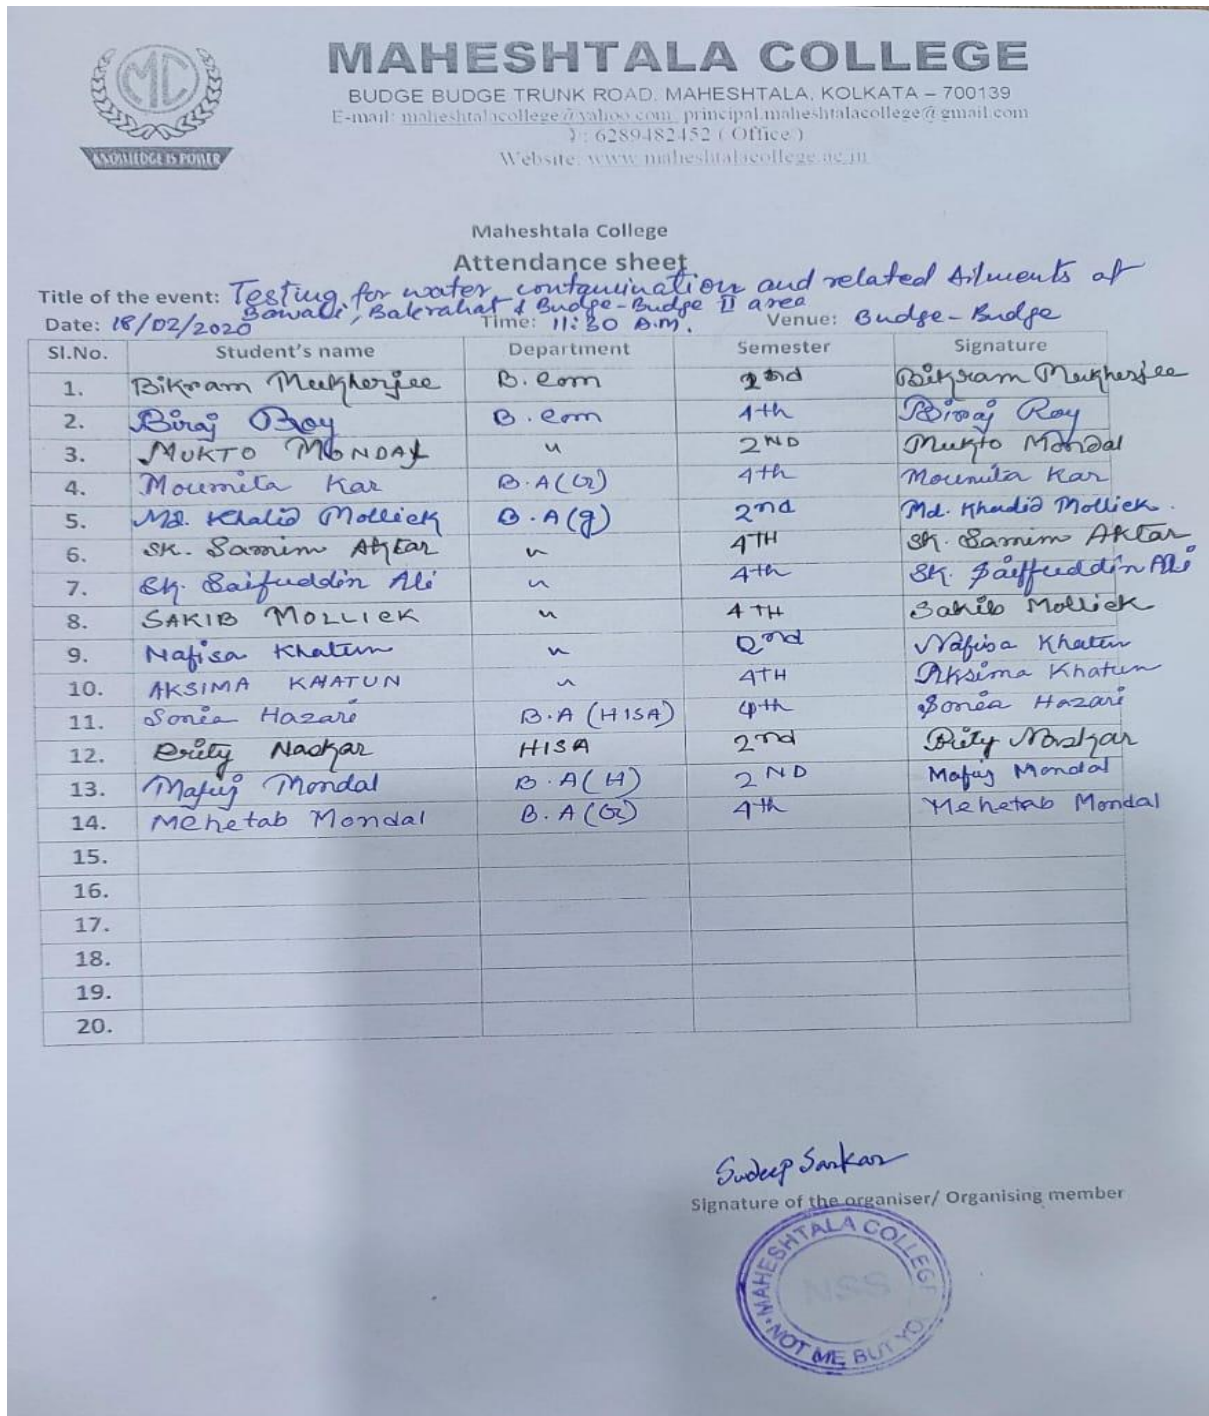 MC
KNOWLEDGE IS POWER
MAHESHTALA COLLEGE
BUDGE BUDGE TRUNK ROAD, MAHESHTALA, KOLKATA – 700139
E-mail: maheshtalacollege@yahoo.com, principal.maheshtalacollege@gmail.com
: 6289482452 ( Office )
Website: www.maheshtalacollege.ac.in
Maheshtala College
Attendance sheet
Title of the event: Testing for water contamination and related Ailments at
Bawali, Bakrahat & Budge-Budge II area
Date: 18/02/2020 Time: 11:30 A.M. Venue: Budge-Budge
Sl.No. Student's name Department Semester Signature
1. Bikram Mukherjee B.Com 2nd Bikram Mukherjee
2. Biraj Roy B.Com 4th Biraj Roy
3. MUKTO MONDAL " 2ND Mukto Mondal
4. Moumita Kar B.A(G) 4th Moumita Kar
5. Md. Khalid Mollick B.A(g) 2nd Md. Khalid Mollick.
6. SK. Samim Aktar " 4TH SK. Samim Aktar
7. Sk. Saifuddin Ali " 4th SK. Saiffuddin Ali
8. SAKIB MOLLICK " 4TH Sakib Mollick
9. Nafisa Khatun " 2nd Nafisa Khatun
10. AKSIMA KHATUN " 4TH Aksima Khatun
11. Sonia Hazari B.A (HISA) 4th Sonia Hazari
12. Naskar HISA 2nd Naskar
13. Mafuj Mondal B.A(H) 2ND Mafuj Mondal
14. Mehetab Mondal B.A(G) 4th Mehetab Mondal
15.
16.
17.
18.
19.
20.
Sudeep Sarkar
Signature of the organiser/ Organising member
MAHESHTALA COLLEGE
NSS
NOT ME BUT YO